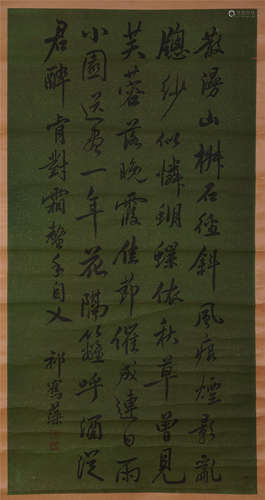 散漫山石徑斜風痕煙影亂
牕紗似憐蝴蝶依秋草曾見
芙蓉落晚霞佳節催成連日雨
小園送盡一年花隔籬呼酒從
君醉肯對霜螯手自叉
祁寯藻